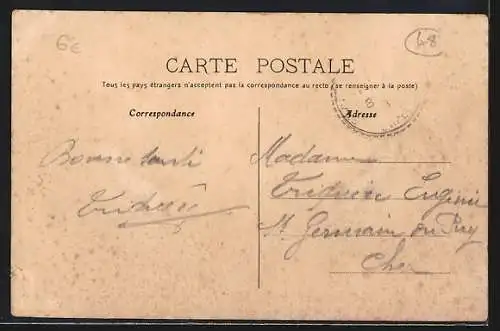 6€
48
CARTE POSTALE
Tous les pays étrangers n'acceptent pas la correspondance au recto (se renseigner à la poste)
Correspondance
Adresse
Bonne santé
Madame
Eugénie
St Germain du Puy
Cher